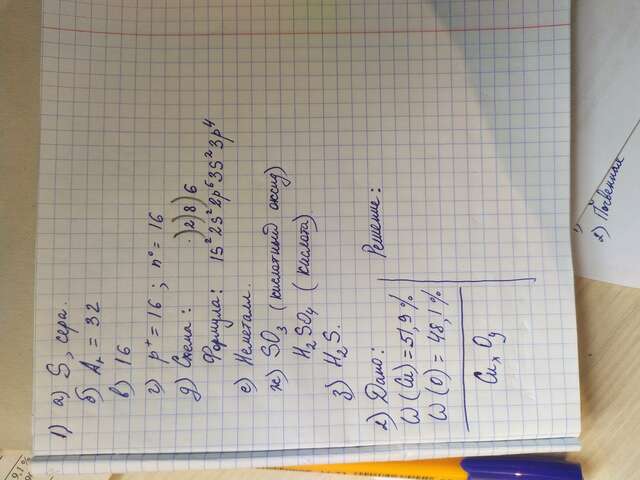 1) а) S, сера.
б) Ar = 32
в) 16
г) p⁺ = 16 ; n⁰ = 16
д) Схема : )2)8)6
Формула : 1S²2S²2p⁶3S²3p⁴
е) Неметалл.
ж) SO₃ (кислотный оксид)
H₂SO₄ (кислота).
з) H₂S.
2) Дано: Решение:
ω (Cu) = 51,9%
ω (O) = 48,1%
CuₓOᵧ
2) Почвенная